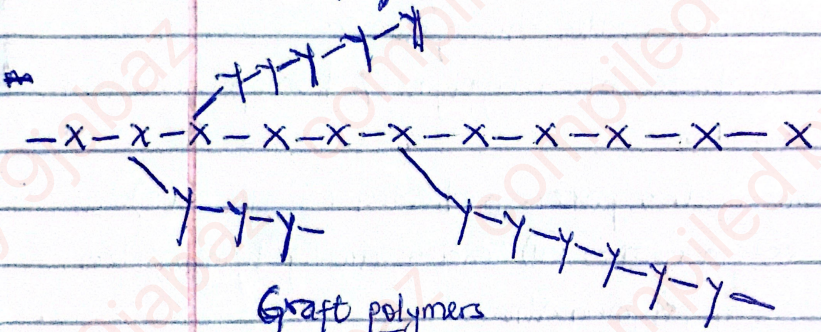 Y-Y-Y-Y-Y
-X-X-X-X-X-X-X-X-X-X-X
Y-Y-Y-
Y-Y-Y-Y-Y-Y-
Graft polymers